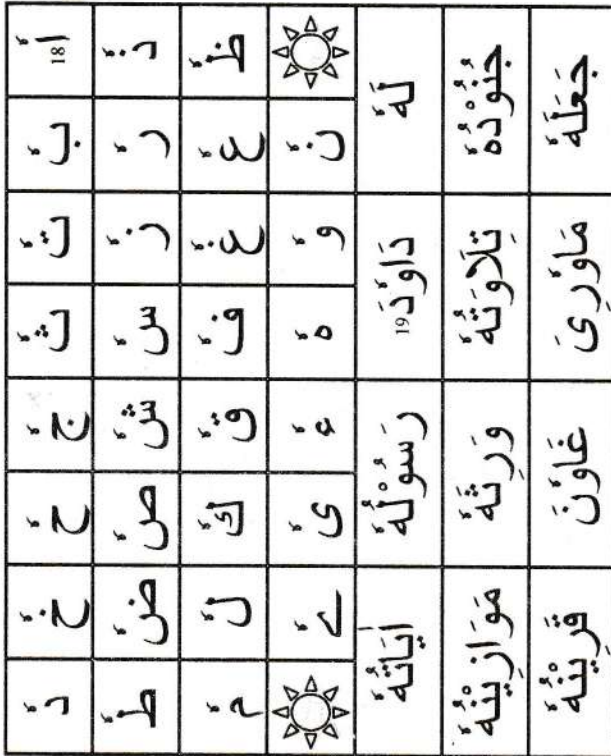 18 اٗ بٗ تٗ ثٗ جٗ حٗ خٗ دٗ
ذٗ رٗ زٗ سٗ شٗ صٗ ضٗ طٗ
ظٗ عٗ غٗ فٗ قٗ كٗ لٗ مٗ
نٗ وٗ هٗ ءٗ ىٗ ےٗ
لَهٗ 19 دَاوٗدَ رَسُوْلُهٗ اٰيَاتُهٗ
جُنُوْدُهٗ تِلَاوَتُهٗ وَرِثَهٗ مَوَازِيْنُهٗ
جَعَلَهٗ مَاوٗرِىَ غَاوٗنَ قَرِيْنُهٗ